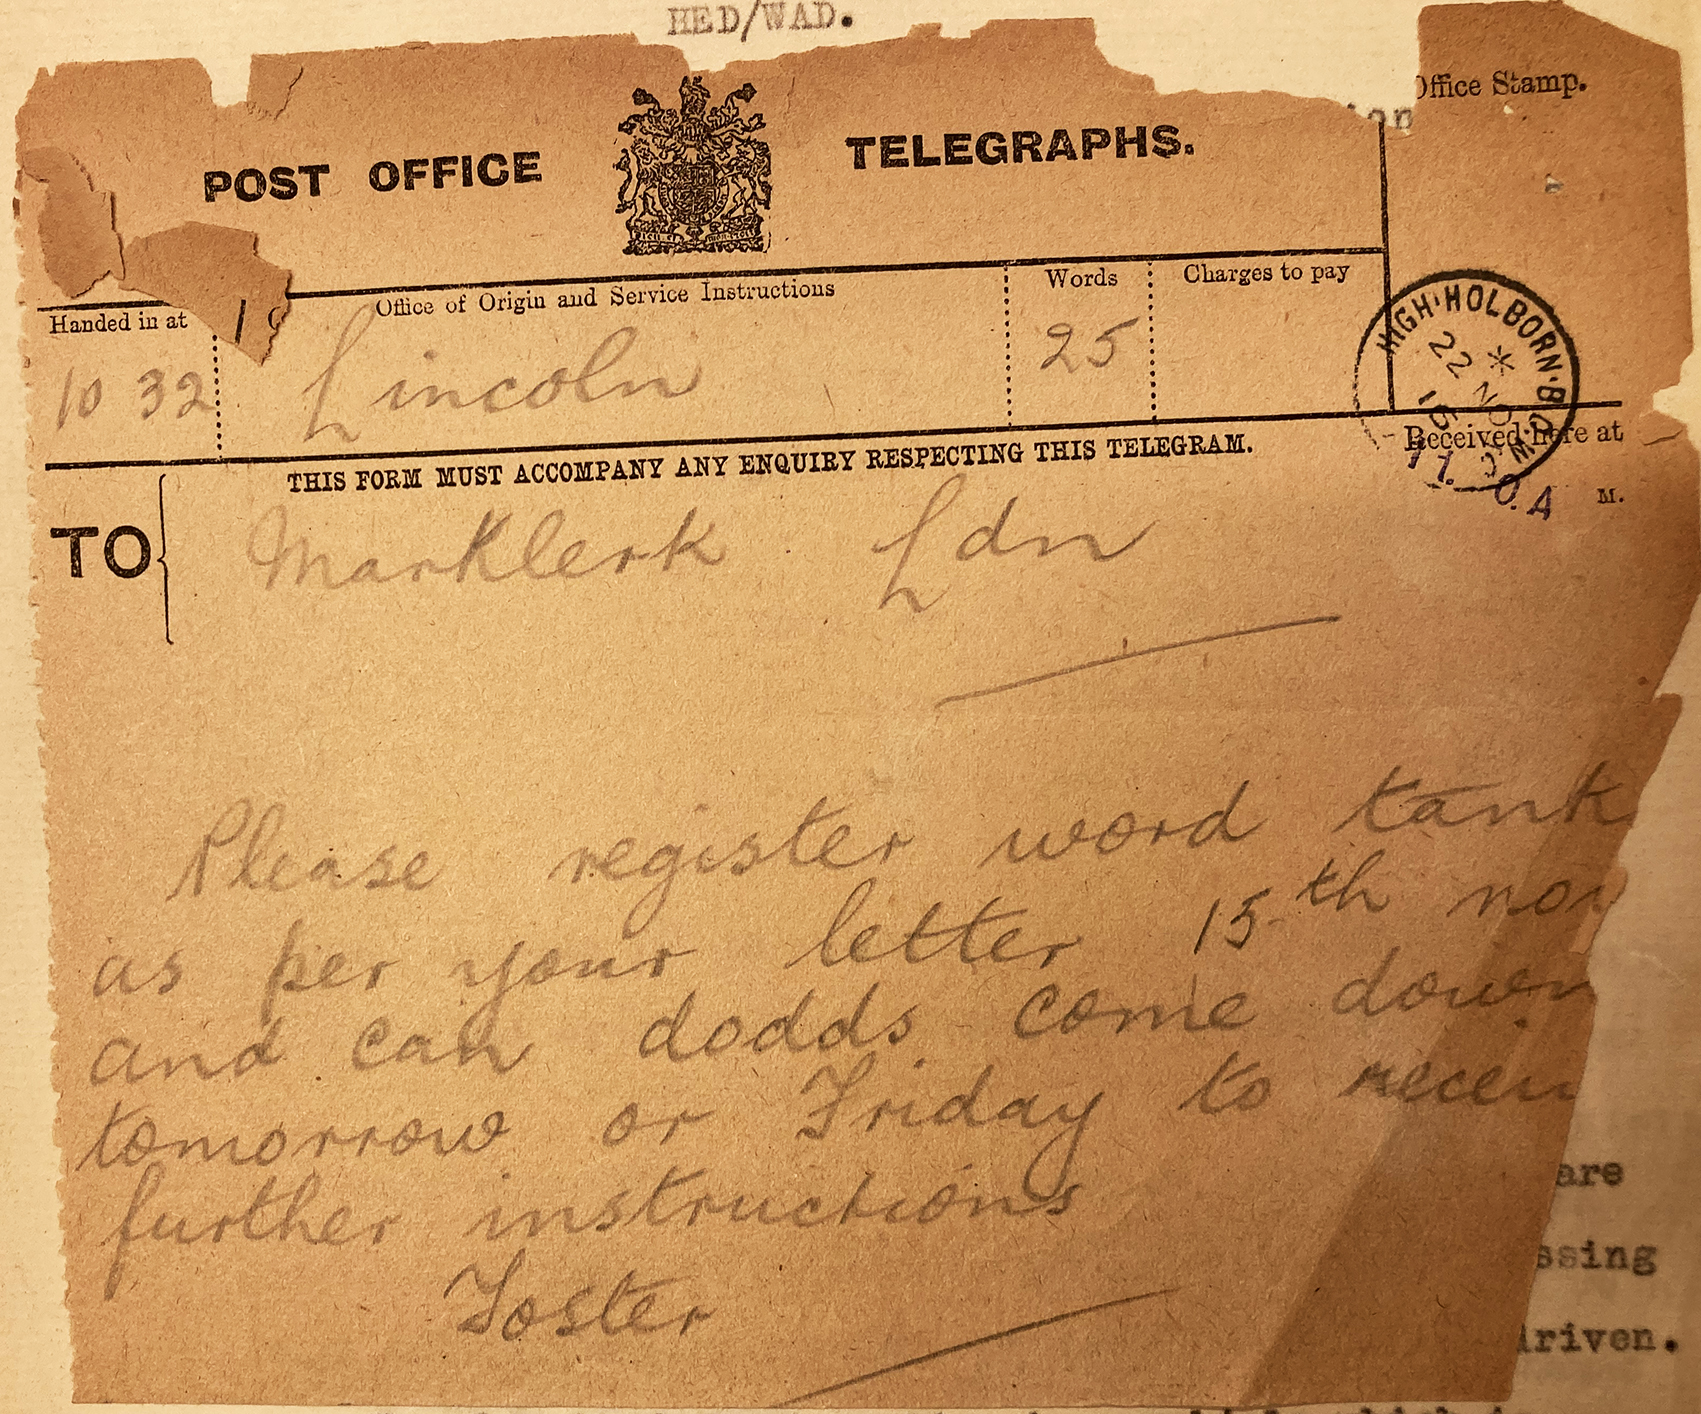 HED/WAD.
Office Stamp.
POST OFFICE TELEGRAPHS.
Handed in at
Office of Origin and Service Instructions
Words
Charges to pay
10 32
Lincoln
25
HIGH·HOLBORN·B.O.
22 NO
16
THIS FORM MUST ACCOMPANY ANY ENQUIRY RESPECTING THIS TELEGRAM.
Received here at
M.
TO
Marklerk Ldn
Please register word tank
as per your letter 15th nov
and can dodds come down
tomorrow or Friday to receiv
further instructions
Foster
are
ssing
driven.